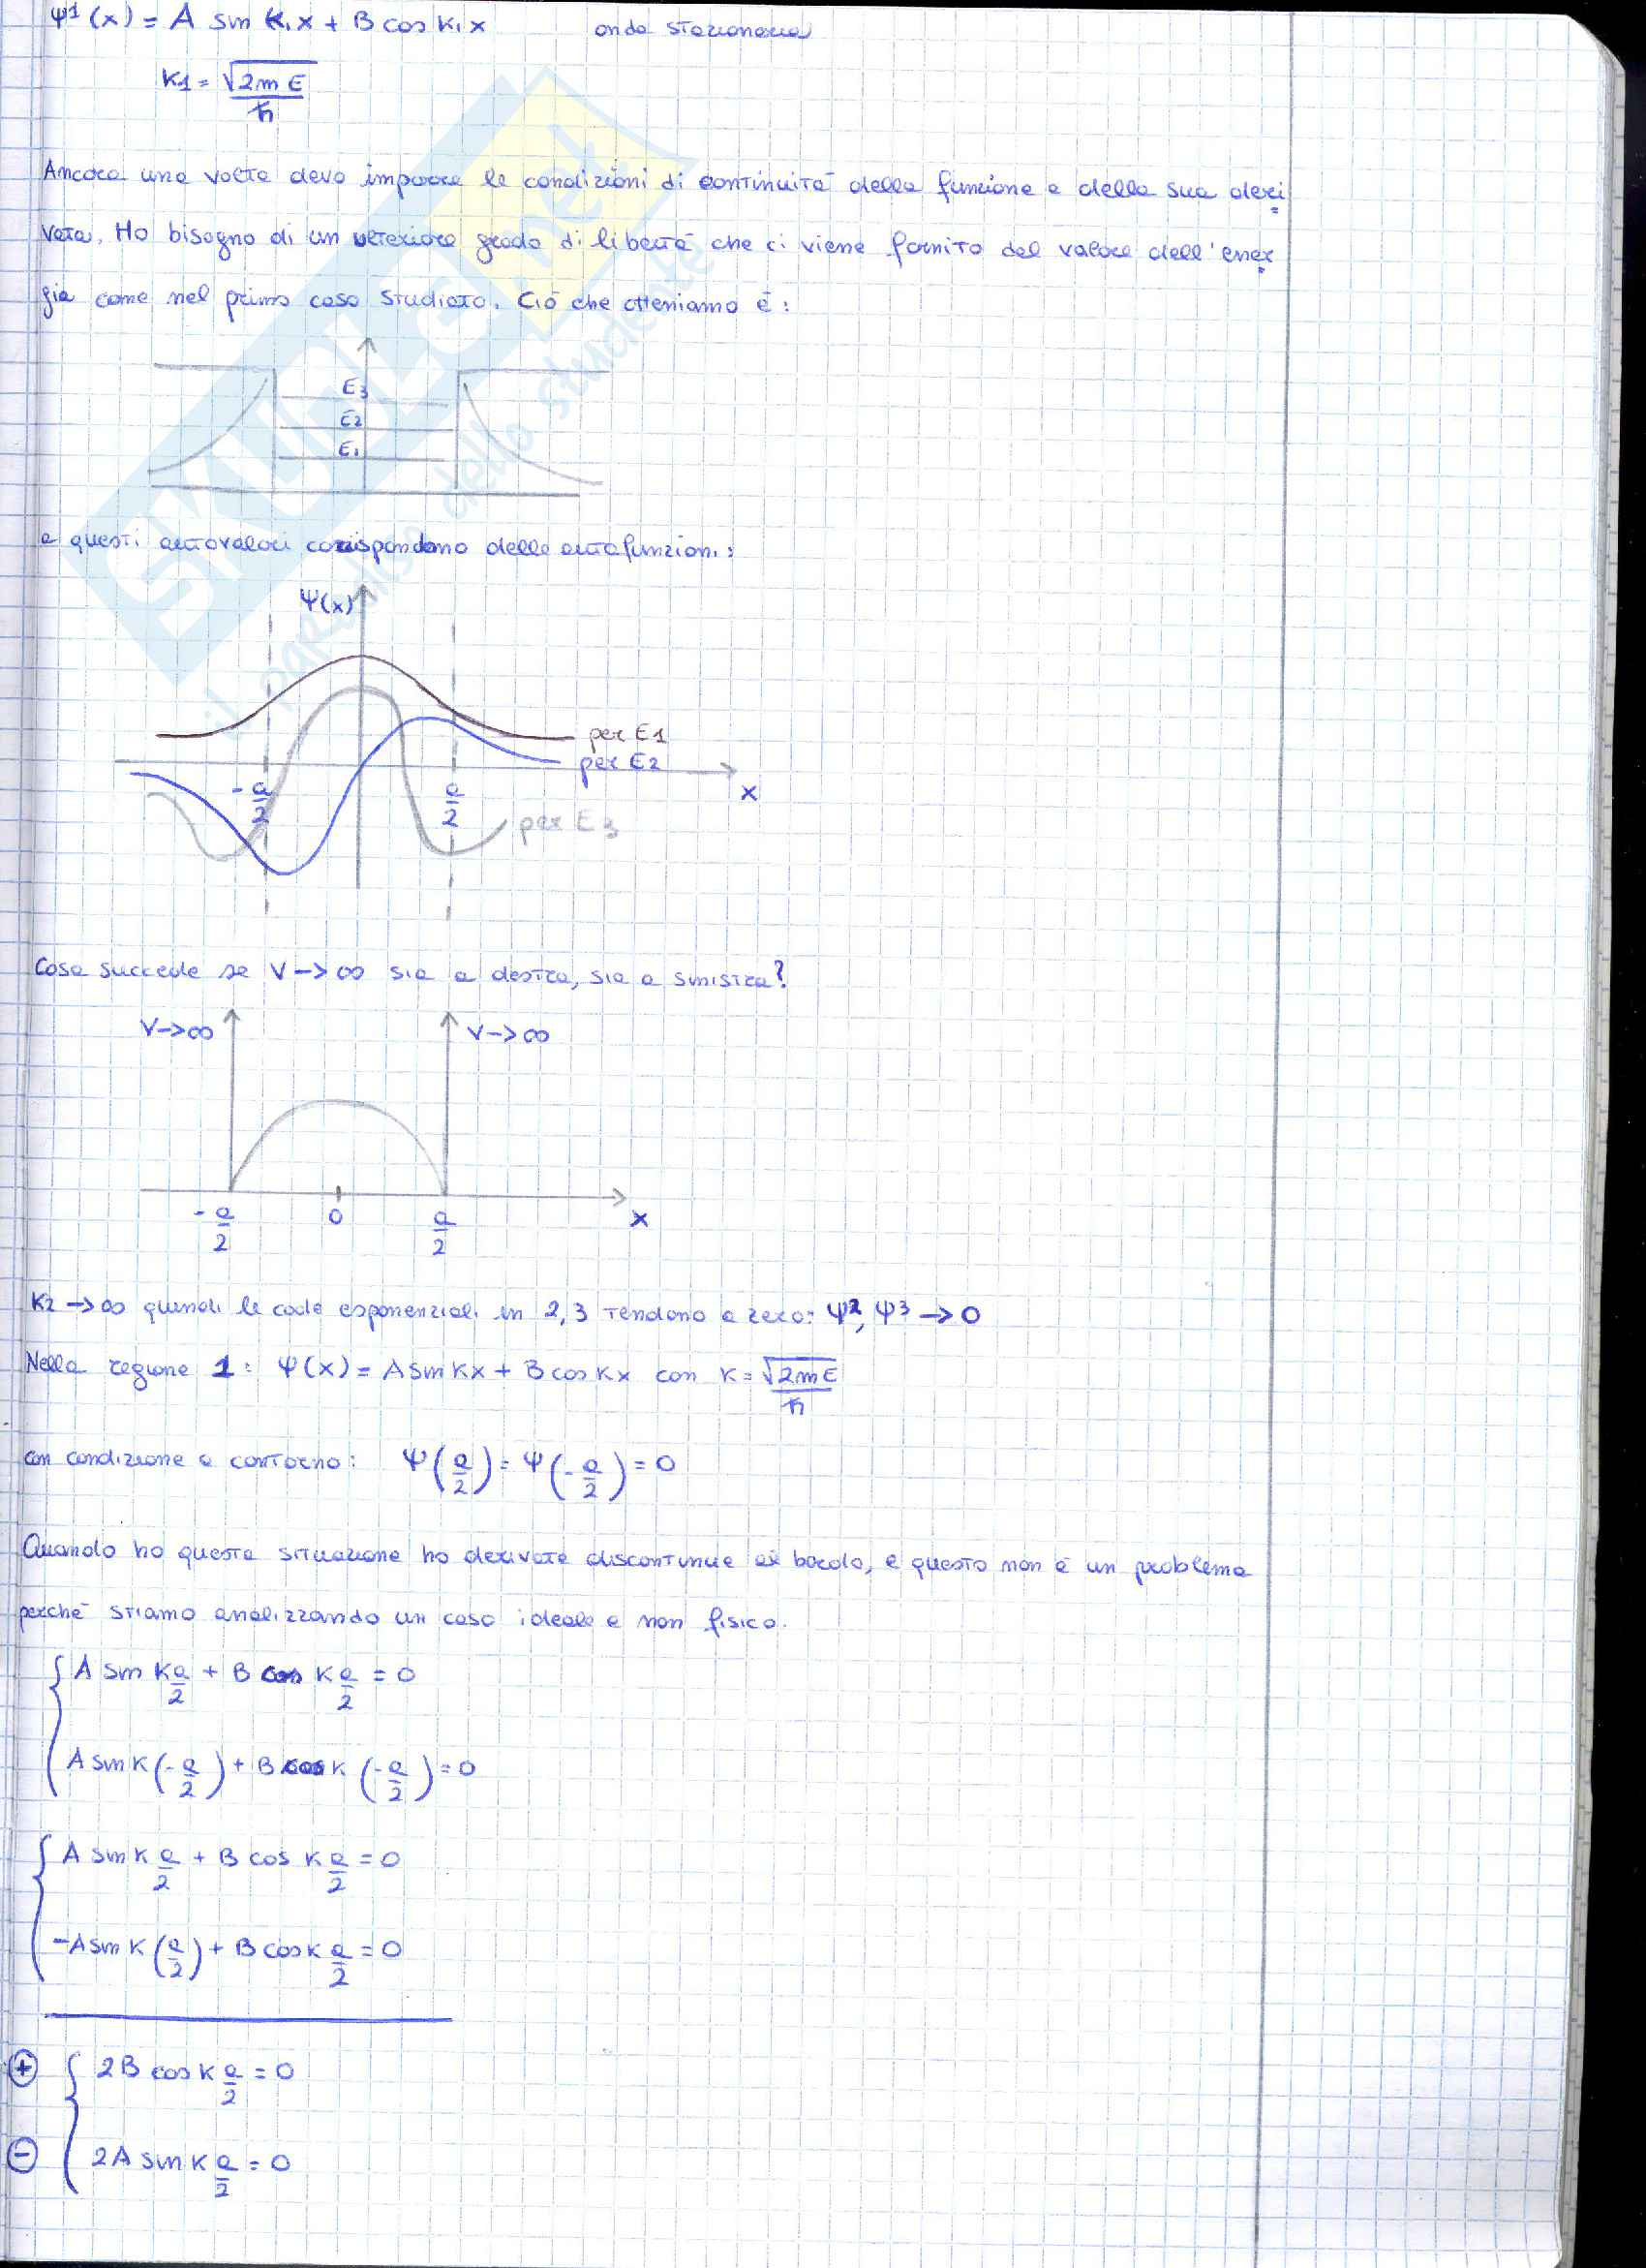 Ψ¹(x) = A sin K₁x + B cos K₁x onda stazionaria
K1 = √2mE / ħ
Ancora una volta devo imporre le condizioni di continuità della funzione e della sua deri
vata. Ho bisogno di un ulteriore grado di libertà che ci viene fornito dal valore dell'ener
gia come nel primo caso studiato. Ciò che otteniamo è:
E3
E2
E1
a questi autovalori corrispondono delle autofunzioni:
Ψ(x)
per E1
per E2
-a/2 a/2 x
per E3
Cosa succede se V→∞ sia a destra, sia a sinistra?
V→∞ V→∞
-a/2 0 a/2 x
K2→∞ quindi le code esponenziali in 2,3 tendono a zero: Ψ², Ψ³ → 0
Nella regione 1: Ψ(x) = A sin Kx + B cos Kx con K = √2mE / ħ
con condizione a contorno: Ψ(a/2) = Ψ(-a/2) = 0
Quando ho questa situazione ho derivate discontinue al bordo, e questo non è un problema
perchè stiamo analizzando un caso ideale e non fisico.
A sin K a/2 + B cos K a/2 = 0
A sin K (-a/2) + B cos K (-a/2) = 0
A sin K a/2 + B cos K a/2 = 0
-A sin K (a/2) + B cos K a/2 = 0
+ 2B cos K a/2 = 0
- 2A sin K a/2 = 0
SKUOLA.net
il paradiso dello studente